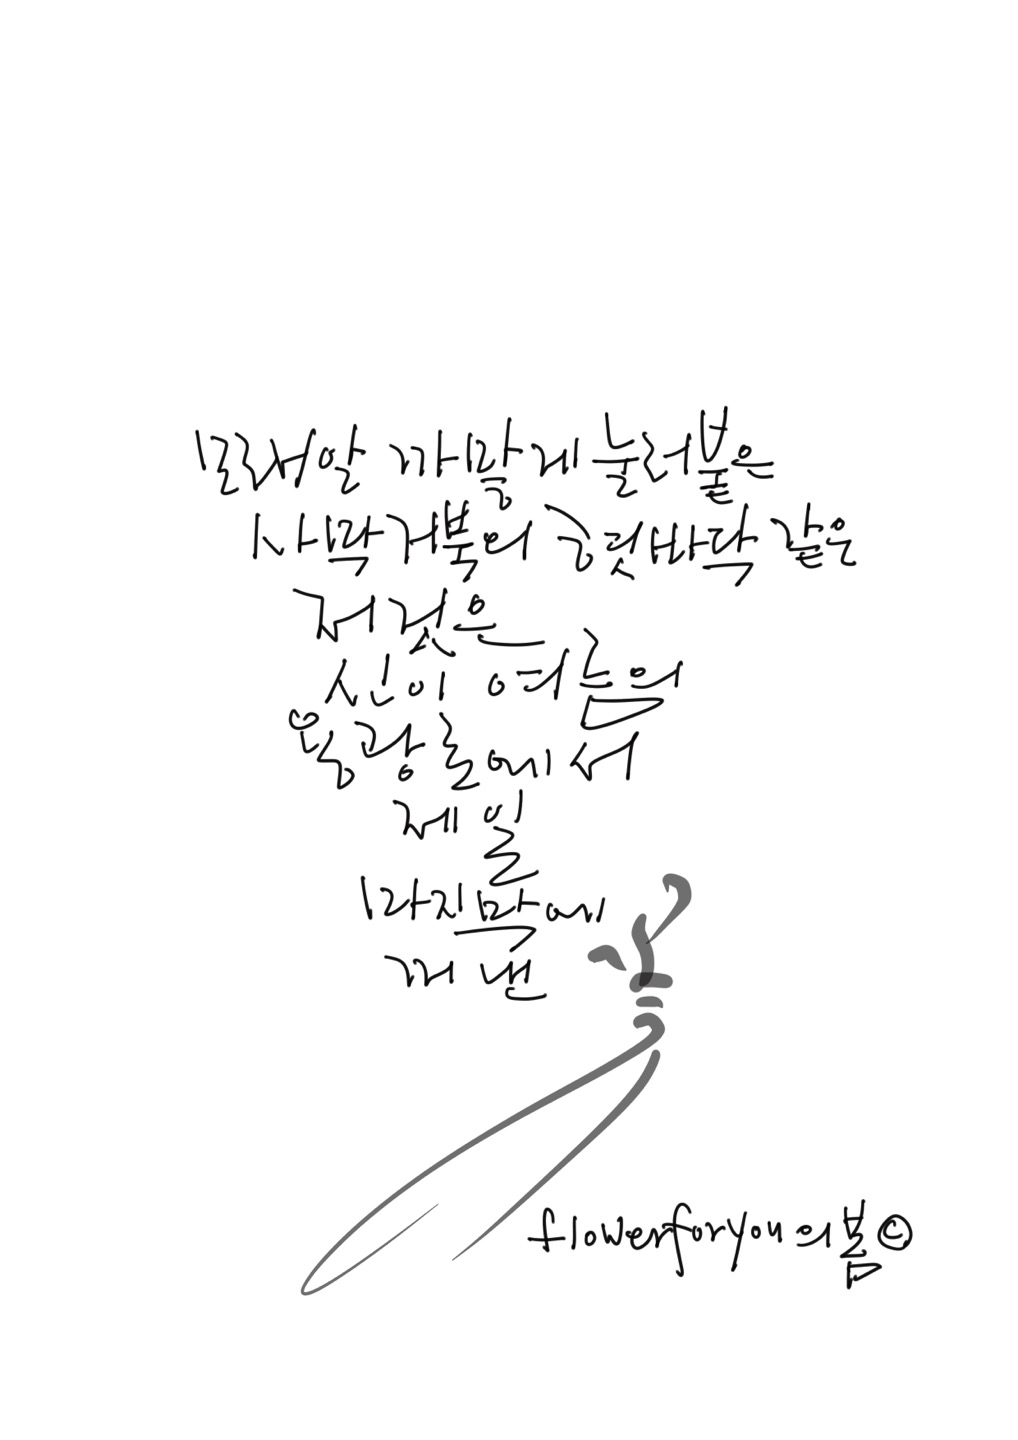 모래알 까맣게 눌러붙은
사막거북의 혓바닥 같은
저것은
신이 여름의
용광로에서
제일
마지막에
꺼낸
꽃
flowerforyou의봄©